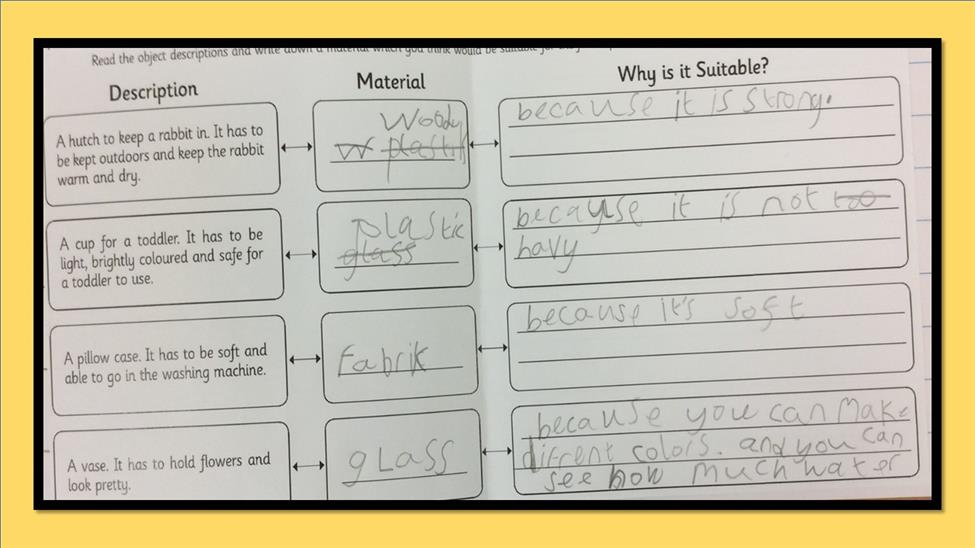 Read the object descriptions and write down a material which you think would be suitable for
Description
Material
Why is it Suitable?
A hutch to keep a rabbit in. It has to
be kept outdoors and keep the rabbit
warm and dry.
Woody
w plastik
because it is strong.
A cup for a toddler. It has to be
light, brightly coloured and safe for
a toddler to use.
plastic
glass
because it is not too
havy
A pillow case. It has to be soft and
able to go in the washing machine.
Fabrik
because it's soft
A vase. It has to hold flowers and
look pretty.
gLass
because you can make
diffrent colors. and you can
see how much water